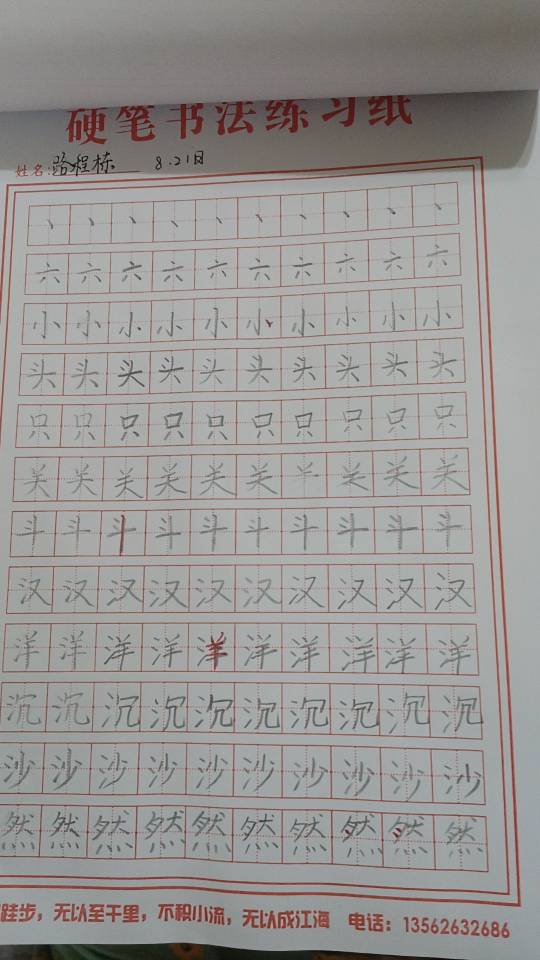 硬笔书法练习纸
姓名:路程栋 8.21日
丶丶丶丶丶丶丶丶丶丶
六六六六六六六六六六
小小小小小小小小小小
头头头头头头头头头头
只只只只只只只只只只
关关关关关关关关关
斗斗斗斗斗斗斗斗斗斗
汉汉汉汉汉汉汉汉汉汉
洋洋洋洋洋洋洋洋洋洋
沉沉沉沉沉沉沉沉沉沉
沙沙沙沙沙沙沙沙沙沙
然然然然然然然然然然
跬步，无以至千里，不积小流，无以成江海 电话：13562632686